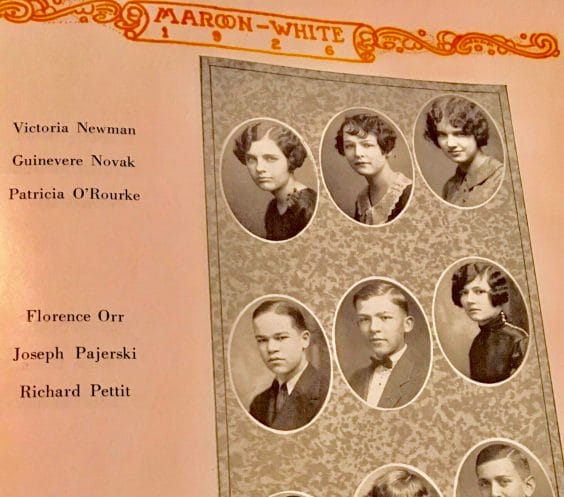 MAROON-WHITE
1926
Victoria Newman
Guinevere Novak
Patricia O'Rourke
Florence Orr
Joseph Pajerski
Richard Pettit